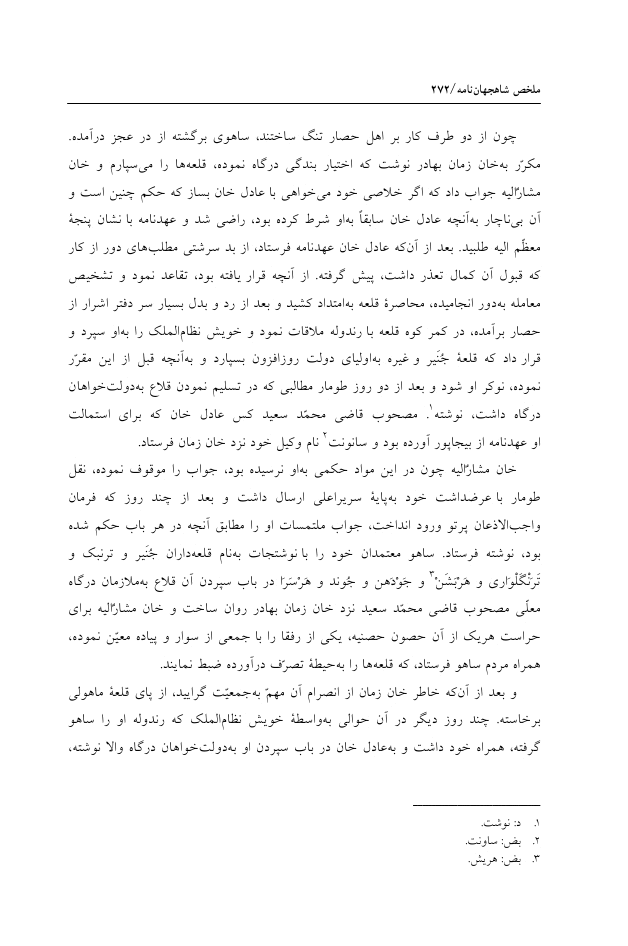 ملخص شاهجهان‌نامه/۲۷۲
چون از دو طرف کار بر اهل حصار تنگ ساختند، ساهوی برگشته از در عجز درآمده.
مکرّر به‌خان زمان بهادر نوشت که اختیار بندگی درگاه نموده، قلعه‌ها را می‌سپارم و خان
مشارٌالیه جواب داد که اگر خلاصی خود می‌خواهی با عادل خان بساز که حکم چنین است و
آن بی‌ناچار به‌آنچه عادل خان سابقاً به‌او شرط کرده بود، راضی شد و عهدنامه با نشان پنجهٔ
معظّم الیه طلبید. بعد از آن‌که عادل خان عهدنامه فرستاد، از بد سرشتی مطلب‌های دور از کار
که قبول آن کمال تعذر داشت، پیش گرفته. از آنچه قرار یافته بود، تقاعد نمود و تشخیص
معامله به‌دور انجامیده، محاصرهٔ قلعه به‌امتداد کشید و بعد از رد و بدل بسیار سر دفتر اشرار از
حصار برآمده، در کمر کوه قلعه با رندوله ملاقات نمود و خویش نظام‌الملک را به‌او سپرد و
قرار داد که قلعهٔ جُنَیر و غیره به‌اولیای دولت روزافزون بسپارد و به‌آنچه قبل از این مقرّر
نموده، نوکر او شود و بعد از دو روز طومار مطالبی که در تسلیم نمودن قلاع به‌دولت‌خواهان
درگاه داشت، نوشته۱. مصحوب قاضی محمّد سعید کس عادل خان که برای استمالت
او عهدنامه از بیجاپور آورده بود و سانونت۲ نام وکیل خود نزد خان زمان فرستاد.
خان مشارٌالیه چون در این مواد حکمی به‌او نرسیده بود، جواب را موقوف نموده، نقل
طومار با عرضداشت خود به‌پایهٔ سریراعلی ارسال داشت و بعد از چند روز که فرمان
واجب‌الاذعان پرتو ورود انداخت، جواب ملتمسات او را مطابق آنچه در هر باب حکم شده
بود، نوشته فرستاد. ساهو معتمدان خود را با نوشتجات به‌نام قلعه‌داران جُنَیر و ترنبک و
تَرَنْگَلْوَاری و هَرْبَشَنْ۳ و جَوْدَهن و جُوند و هَرْسَرَا در باب سپردن آن قلاع به‌ملازمان درگاه
معلّی مصحوب قاضی محمّد سعید نزد خان زمان بهادر روان ساخت و خان مشارٌالیه برای
حراست هریک از آن حصون حصنیه، یکی از رفقا را با جمعی از سوار و پیاده معیّن نموده،
همراه مردم ساهو فرستاد، که قلعه‌ها را به‌حیطهٔ تصرّف درآورده ضبط نمایند.
و بعد از آن‌که خاطر خان زمان از انصرام آن مهمّ به‌جمعیّت گرایید، از پای قلعهٔ ماهولی
برخاسته. چند روز دیگر در آن حوالی به‌واسطهٔ خویش نظام‌الملک که رندوله او را ساهو
گرفته، همراه خود داشت و به‌عادل خان در باب سپردن او به‌دولت‌خواهان درگاه والا نوشته،
۱. د: نوشت.
۲. بض: ساونت.
۳. بض: هریش.